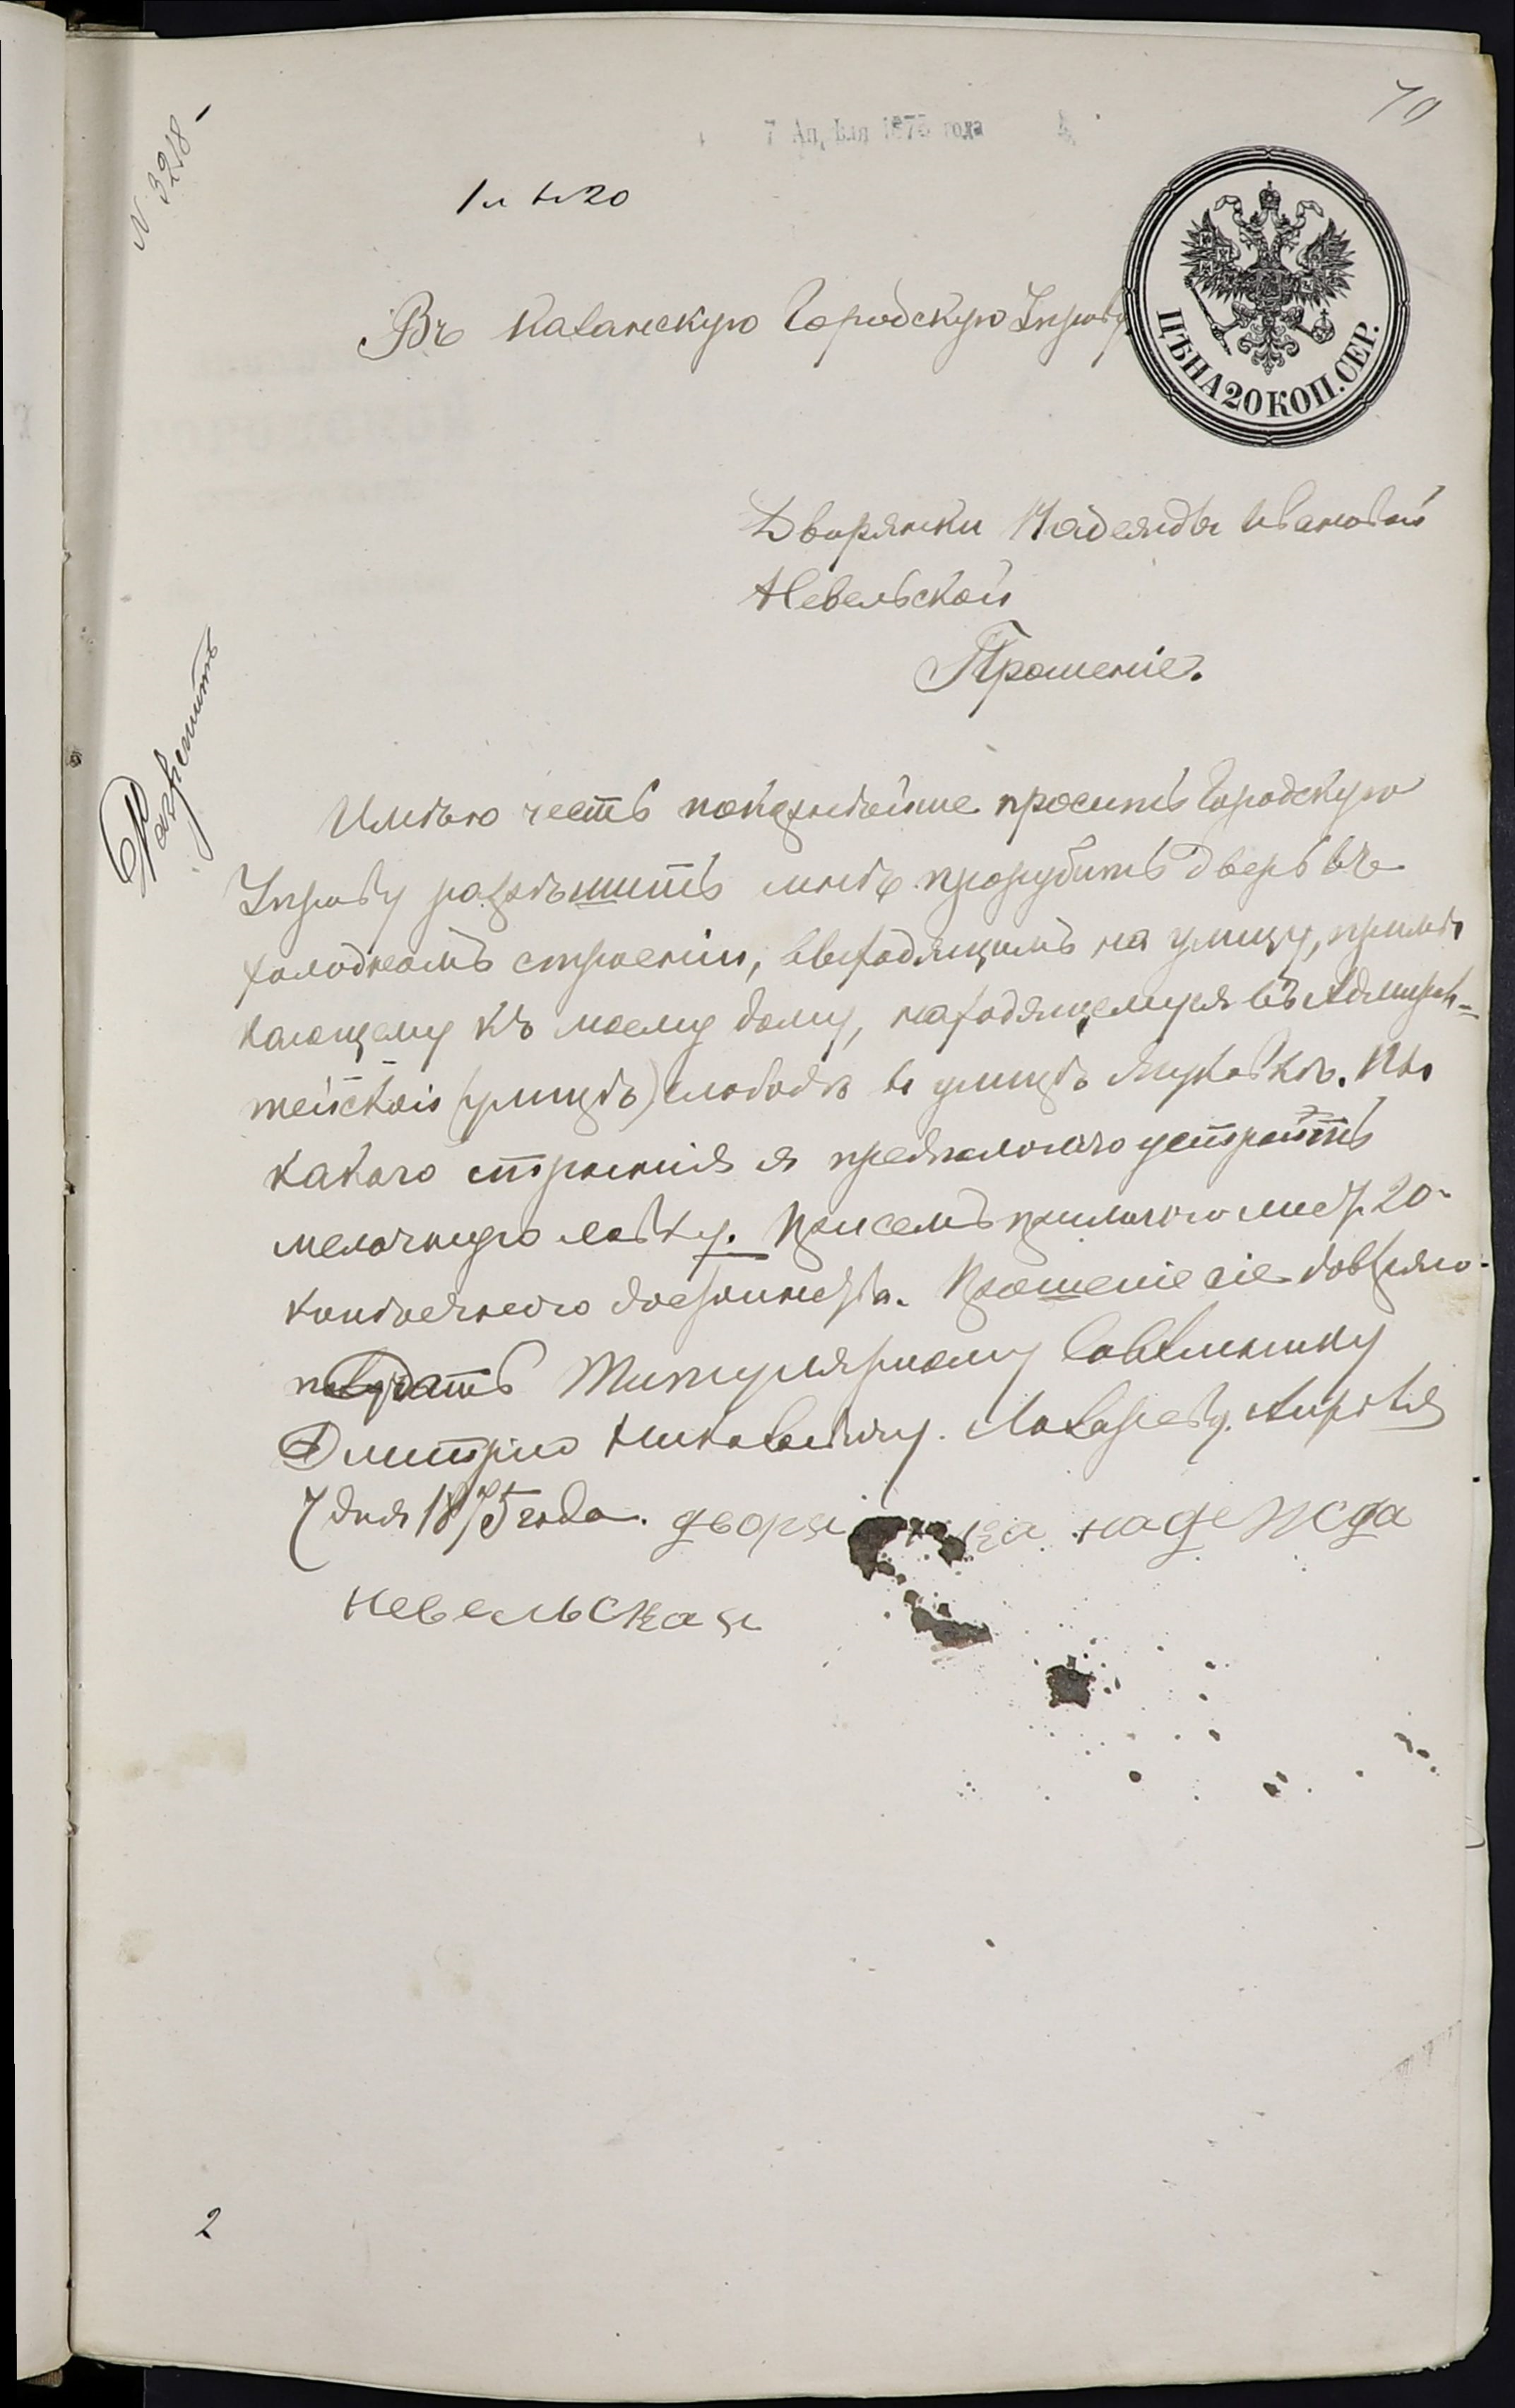 70
7 Апрѣля 1875 года
N 3218
1 л N 20
Въ Казанскую Городскую Управу
ЦѢНА 20 КОП. СЕР.
Дворянки Надежды Ивановой
Невельской
Прошеніе.
Разрешить
Имѣю честь покорнѣйше просить Городскую
Управу разрѣшить мнѣ прорубить дверь въ
холодномъ строеніи, выходящимъ на улицу, примы
кающему къ моему дому, находящемуся въ Адмирал=
тейской (улицѣ) слободѣ въ улицѣ
какого строенія я предположила устроить
мелочную лавку. При семъ прилагаю 20
копѣечнаго достоинства. Прошеніе сіе довѣряю
подать Титулярному Совѣтнику
Дмитрію Николаевичу Лазареву. Апрѣля
7 дня 1875 года. дворянка надежда
невельская
2